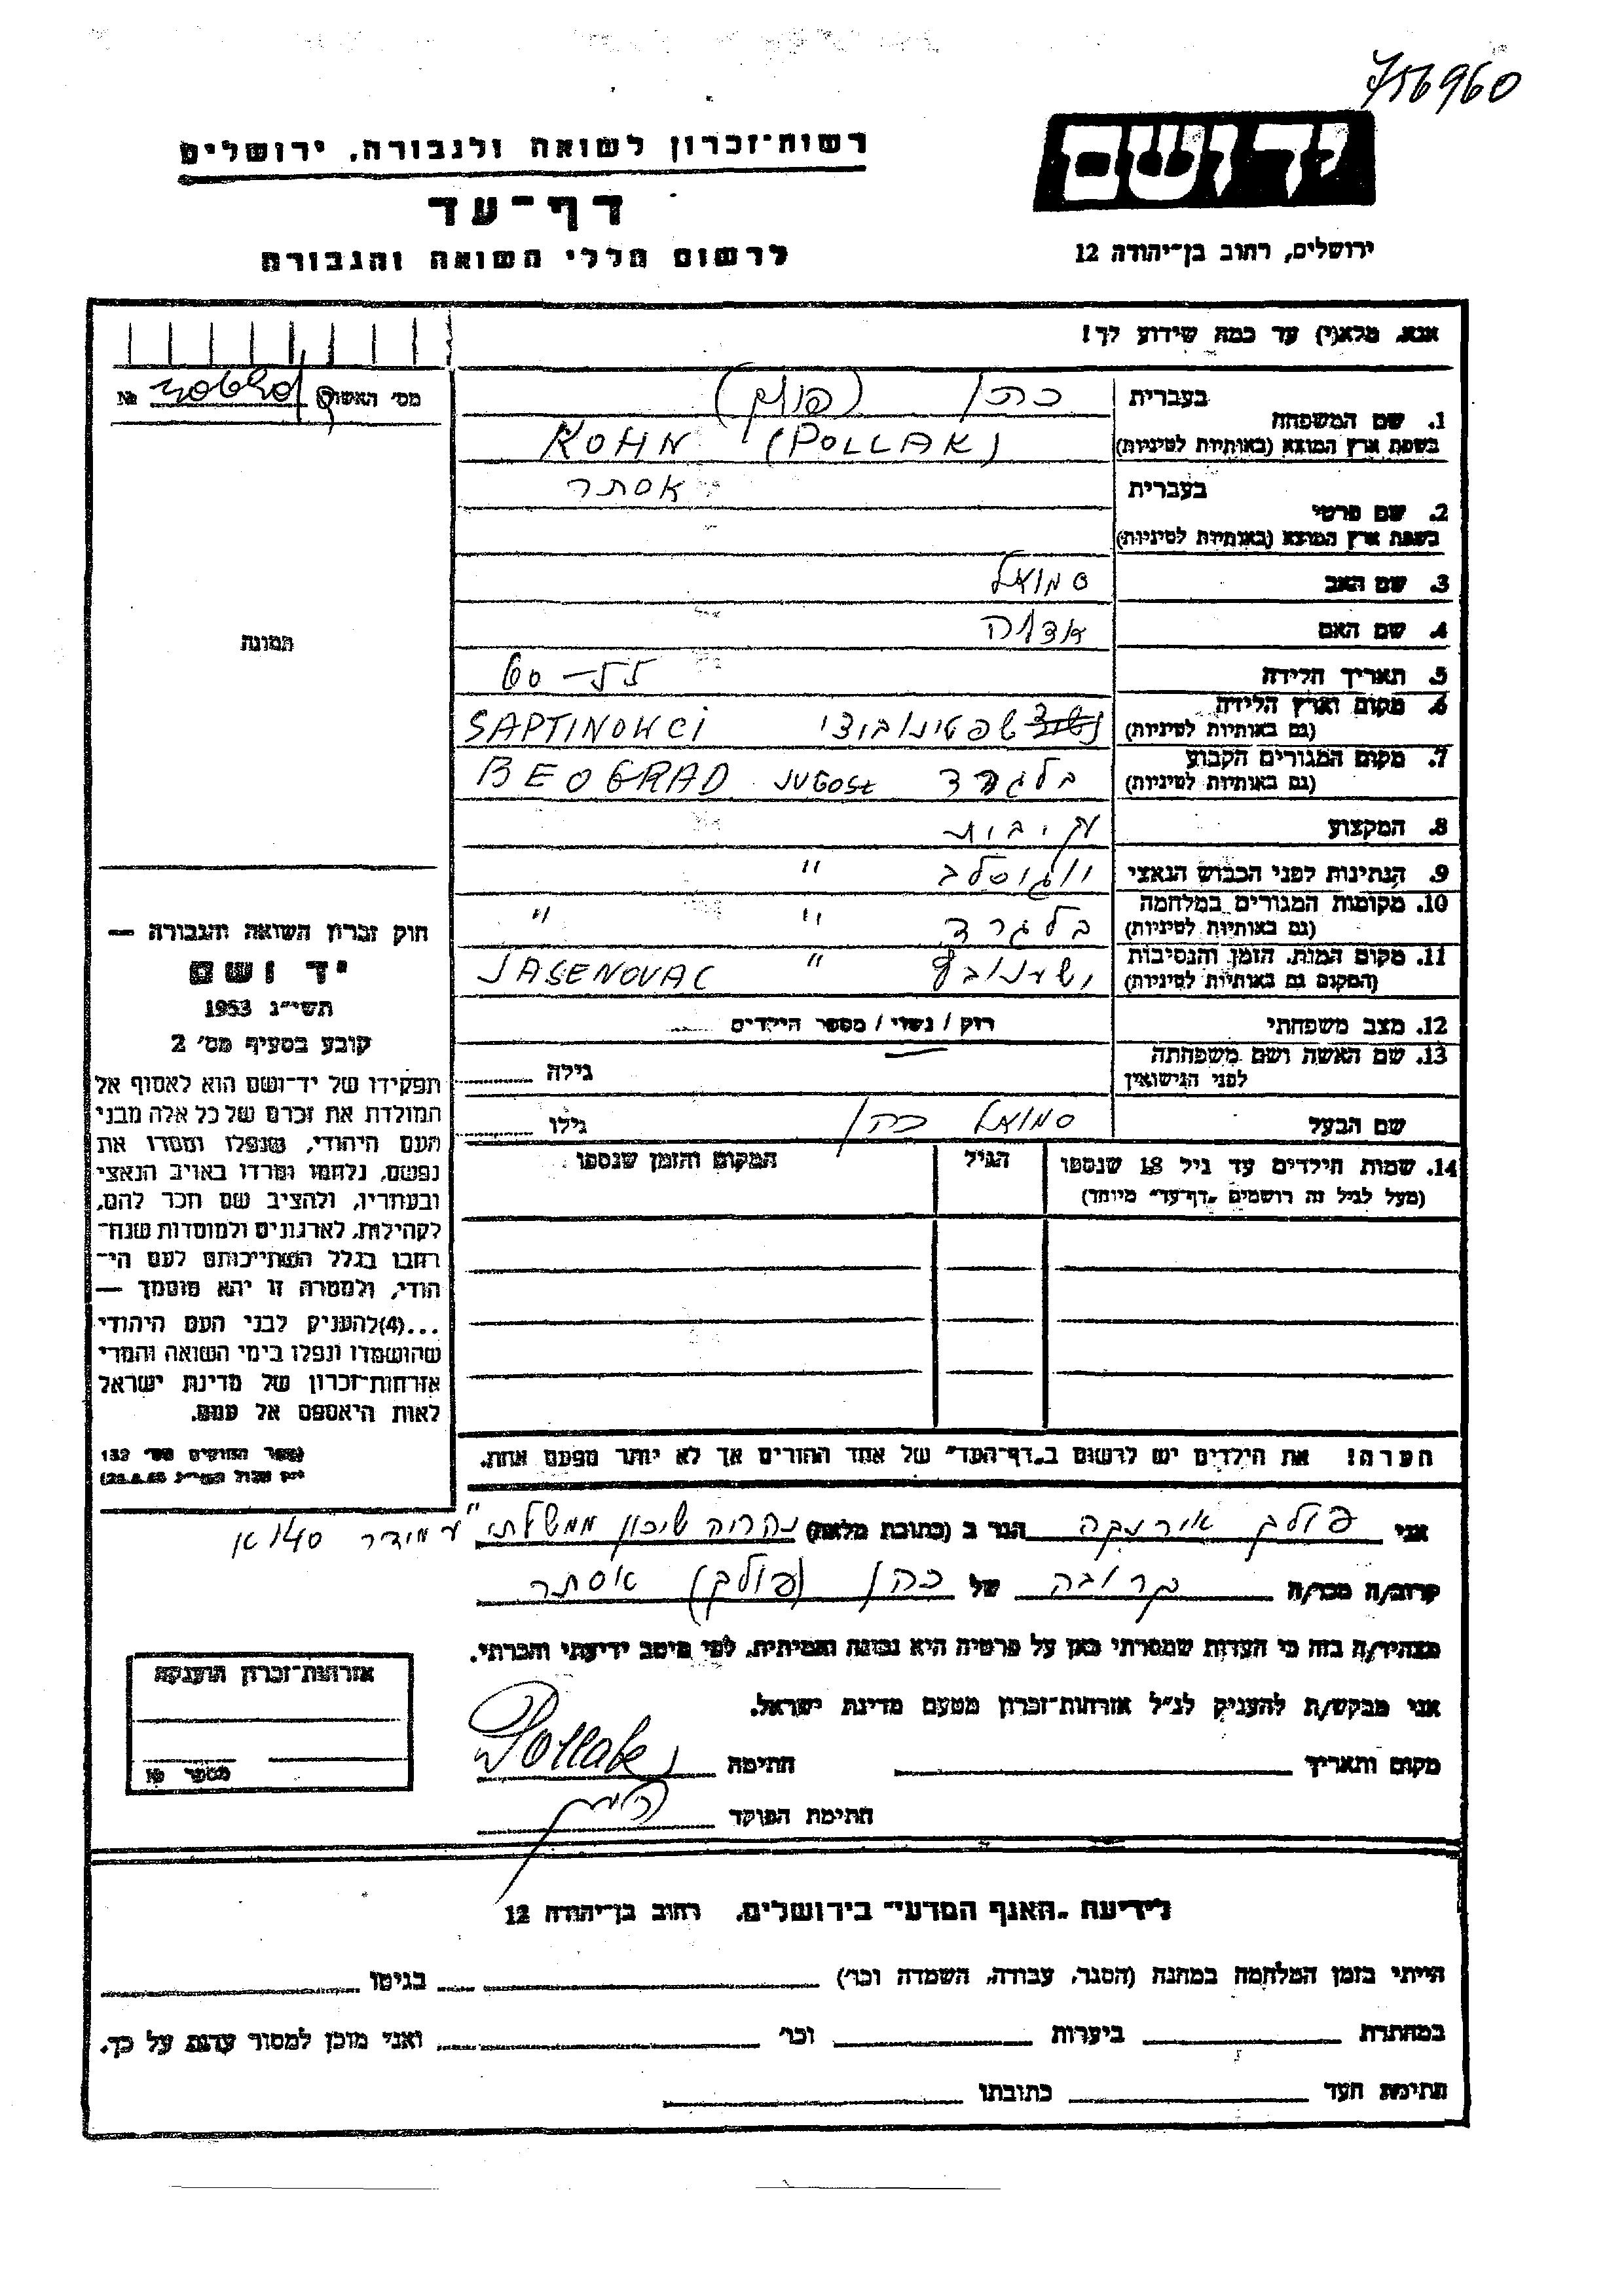 756960
יד ושם
רשות־זכרון לשואה ולגבורה, ירושלים
דף־עד
לרשום חללי השואה והגבורה
ירושלים, רחוב בן־יהודה 12
אנא, מלא(י) עד כמה שידוע לך!
מס' האשוק №
1. שם המשפחה
בעברית כהן (פולק)
בשפת ארץ המוצא (באותיות לטיניות) KOHN (POLLAK)
2. שם פרטי
בעברית אסתר
בשפת ארץ המוצא (באותיות לטיניות)
3. שם האב סמואל
4. שם האם
תמונה
5. תאריך הלידה 60
6. מקום וארץ הלידה
(גם באותיות לטיניות) שפטינובצי SAPTINOWCI
7. מקום המגורים הקבוע
(גם באותיות לטיניות) בלגרד JUGOSL BEOGRAD
8. המקצוע עקיבות
9. הנתינות לפני הכבוש הנאצי יוגוסלב "
10. מקומות המגורים במלחמה
(גם באותיות לטיניות) בלגרד " "
11. מקום המות, הזמן והנסיבות
(המקום גם באותיות לטיניות) " JASENOVAC
12. מצב משפחתי רוק / נשוי / מספר הילדים
13. שם האשה ושם משפחתה
לפני הנישואין גילה
שם הבעל סמואל כהן גילו
14. שמות הילדים עד גיל 18 שנספו הגיל המקום והזמן שנספו
(מעל לגיל זה רושמים „דף־עד” מיוחד)
חוק זכרון השואה והגבורה —
יד ושם
תשי"ג 1953
קובע בסעיף מס' 2
תפקידו של יד־ושם הוא לאסוף אל
המולדת את זכרם של כל אלה מבני
העם היהודי, שנפלו ומסרו את
נפשם, נלחמו ומרדו באויב הנאצי
ובעוזריו, ולהציב שם וזכר להם,
לקהילות, לארגונים ולמוסדות שנח־
רבו בגלל השתייכותם לעם הי־
הודי, ולמטרה זו יהא מוסמך —
...(4)להעניק לבני העם היהודי
שהושמדו ונפלו בימי השואה והמרי
אזרחות־זכרון של מדינת ישראל
לאות היאספם אל עמם.
(ספר החוקים מס' 132
הערה! את הילדים יש לרשום ב„דף־העד” של אחד ההורים אך לא יותר מפעם אחת.
אני פולק אירנקה הגר ב (כתובת מלאה) נהריה שיכון ממשלתי "עמידר 140א
קרוב/ה מכר/ה קרובה של כהן (פולק) אסתר
מצהיר/ה בזה כי העדות שמסרתי כאן על פרטיה היא נכונה ואמיתית, לפי מיטב ידיעתי והכרתי.
אני מבקש/ת להעניק לנ"ל אזרחות־זכרון מטעם מדינת ישראל.
מקום ותאריך חתימה Pollak
חתימת הפוקד
אזרחות־זכרון הוענקה
מספר №
לידיעת „האגף המדעי” בירושלים, רחוב בן־יהודה 12
הייתי בזמן המלחמה במחנה (הסגר, עבודה, השמדה וכו') בגיטו
במחתרת ביערות וכו' ואני מוכן למסור עדות על כך.
חתימת העד כתובתו